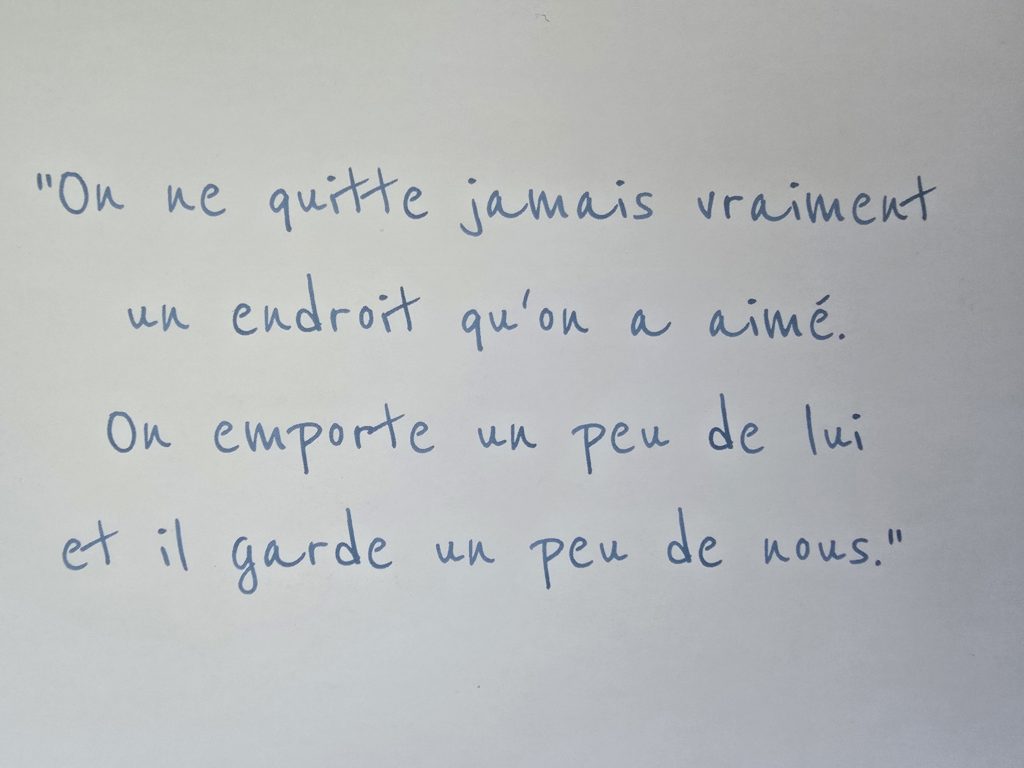 "On ne quitte jamais vraiment
un endroit qu'on a aimé.
On emporte un peu de lui
et il garde un peu de nous."